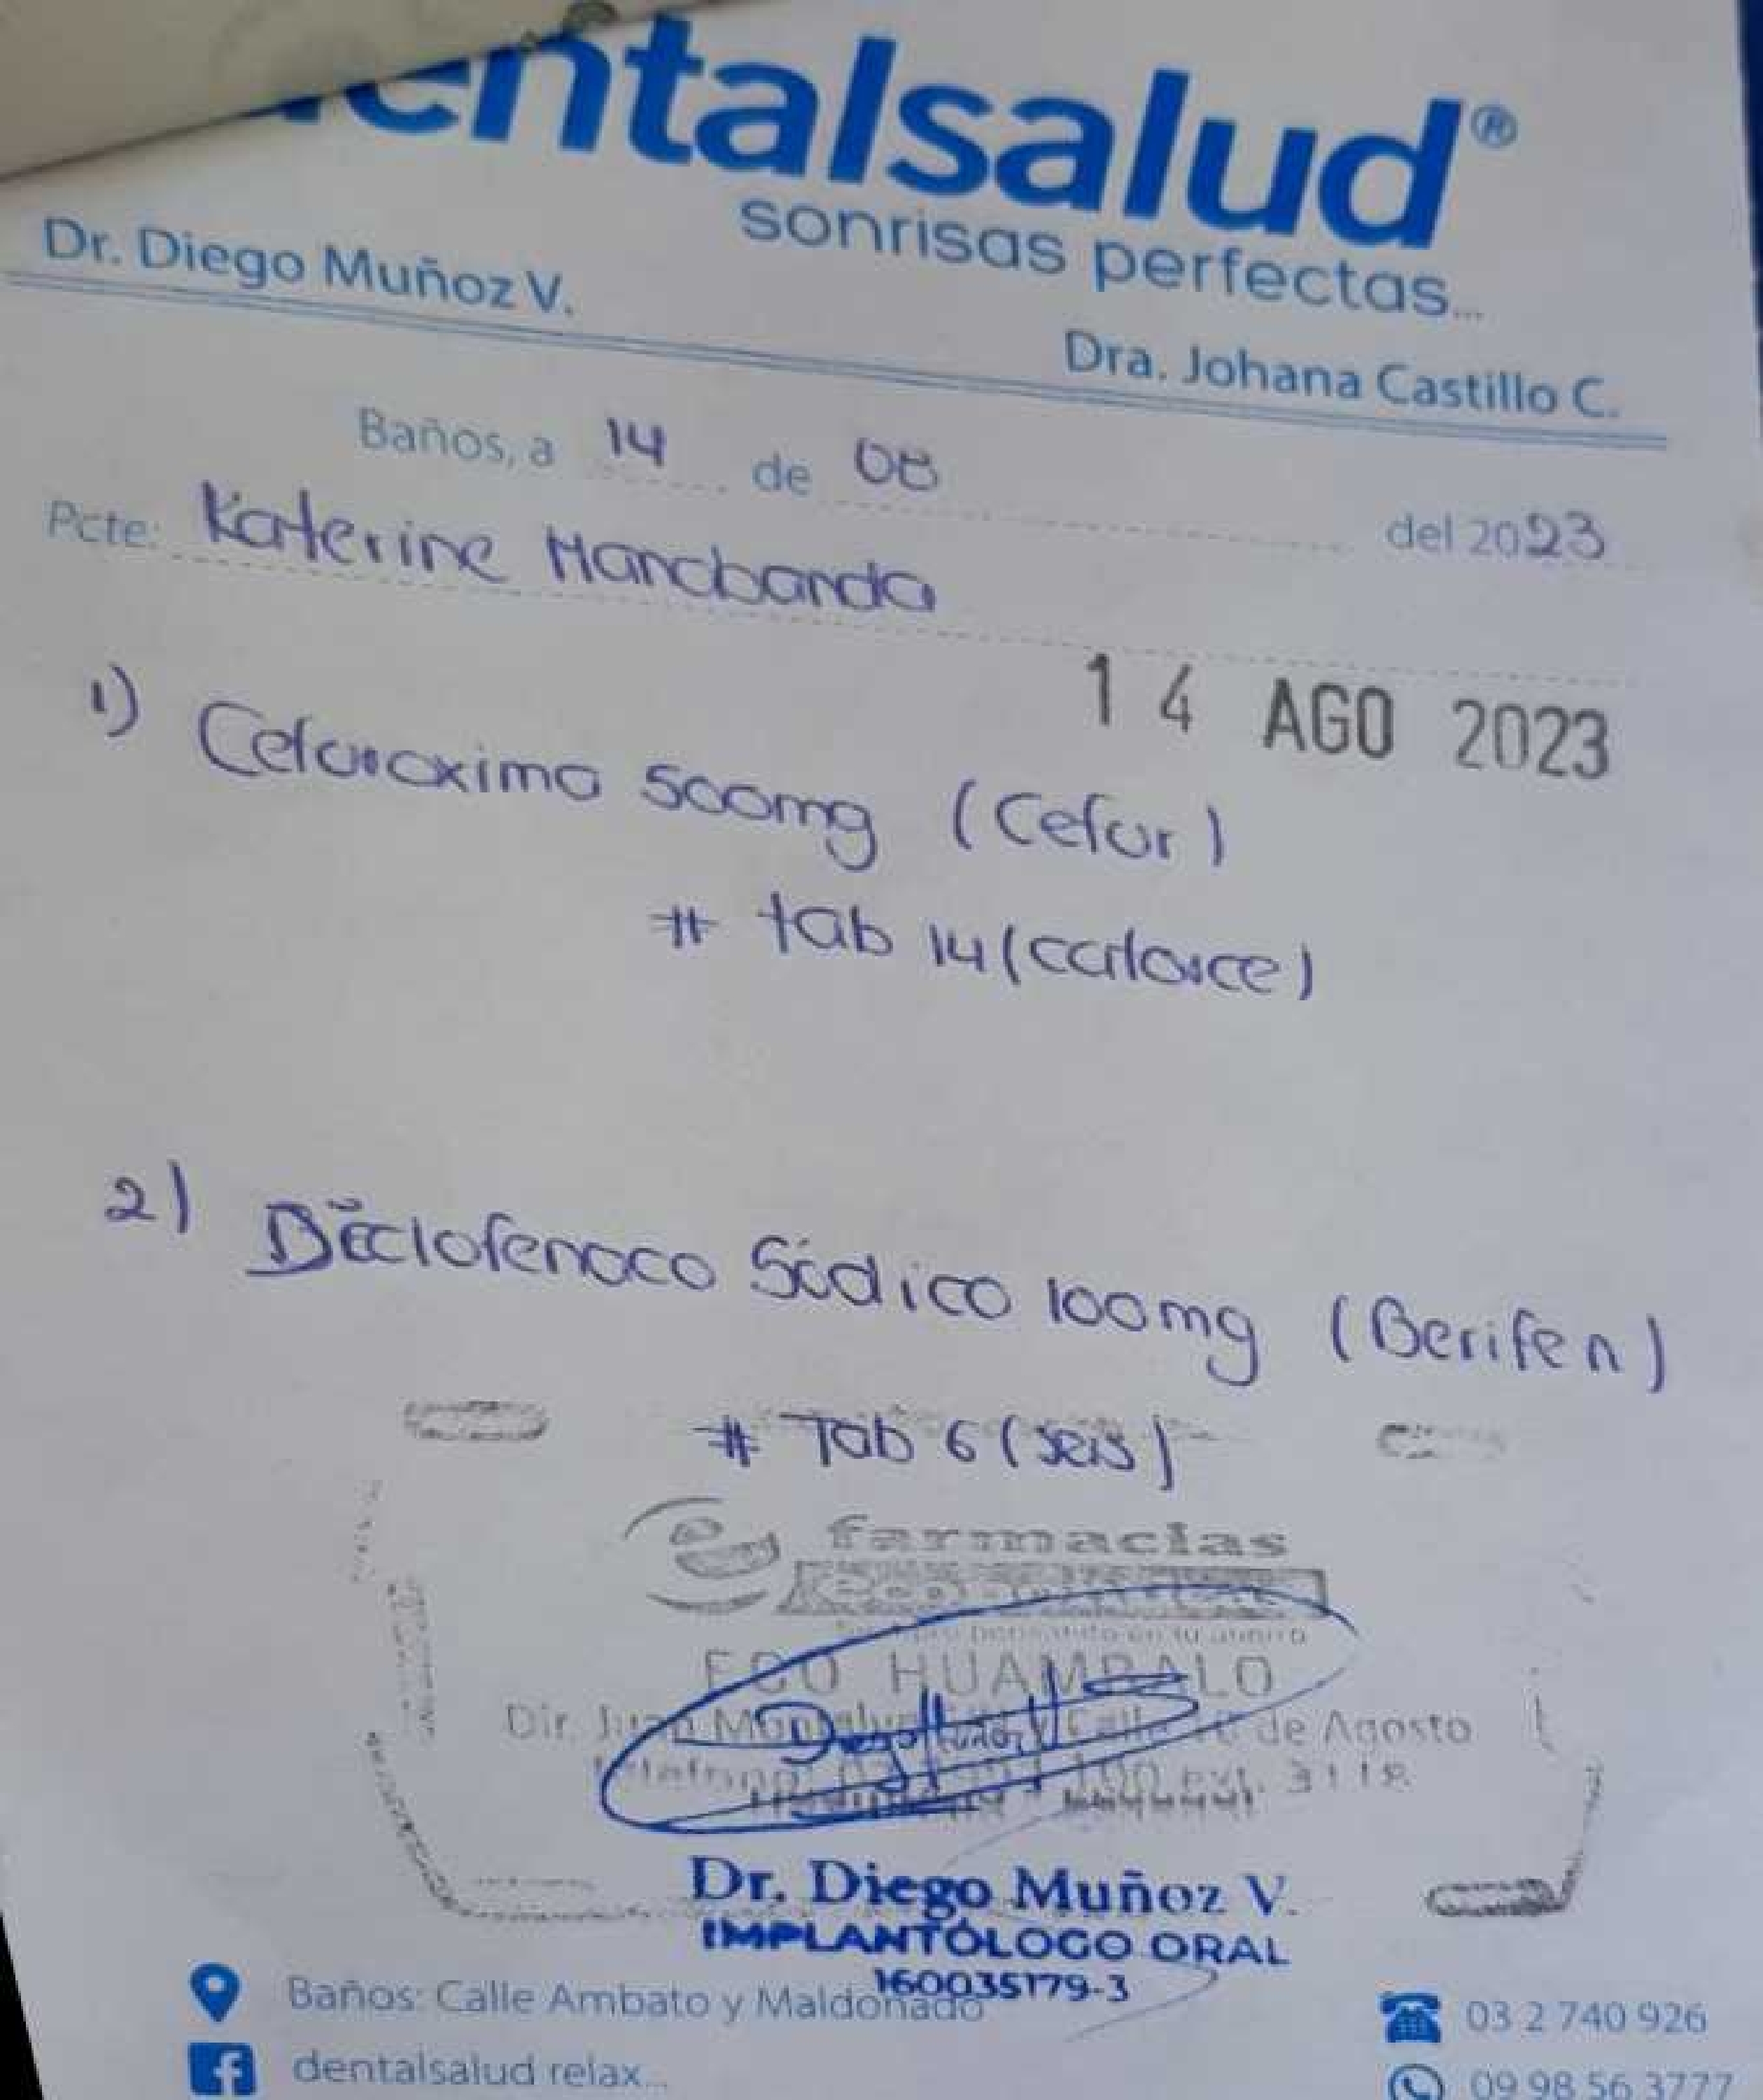 dentalsalud®
sonrisas perfectas...
Dr. Diego Muñoz V.
Dra. Johana Castillo C.
Baños, a 14 de 08 del 2023
Pcte: Katerine Manobanda
14 AGO 2023
1) Cefuroxima 500mg (Cefur)
# tab 14 (catorce)
2) Diclofenaco Sódico 100mg (Berifen)
# Tab 6 (seis)
farmacias
ECO HUAMBALO
Dir. Juan y Calle de Agosto
ext. 3118
Dr. Diego Muñoz V.
IMPLANTÓLOGO ORAL
160035179-3
Baños: Calle Ambato y Maldonado
03 2 740 926
dentalsalud relax...
09 98 56 3777